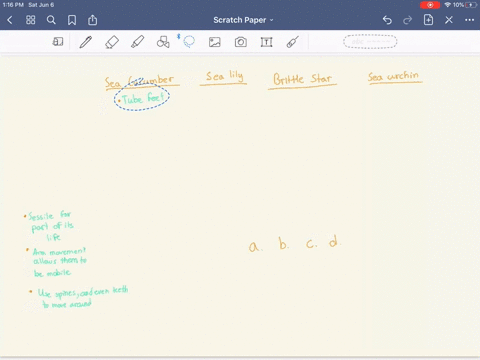 1:16 PM Sat Jun 6
10%
Scratch Paper
Sea Cucumber Sea lily Brittle Star Sea urchin
• Tube feet
• Sessile for
part of its
life
• Arm movement
allows them to
be mobile
• Use spines, and even teeth
to move around
a. b. c. d.